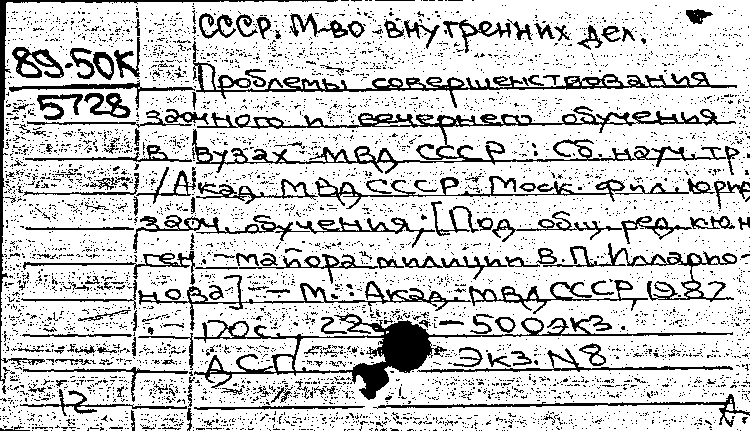 СССР. М-во внутренних дел.
89-50К
5728
Проблемы совершенствования
заочного и вечернего обучения
в вузах МВД СССР : Сб. науч. тр.
/Акад. МВД СССР. Моск. фил. юрид.
заоч. обучения; [Под общ. ред.
ген. - майора милиции В.П. Илларио-
нова]. - М.: Акад. МВД СССР, 1987
. - 500экз.
ДСП. Экз. N8
12